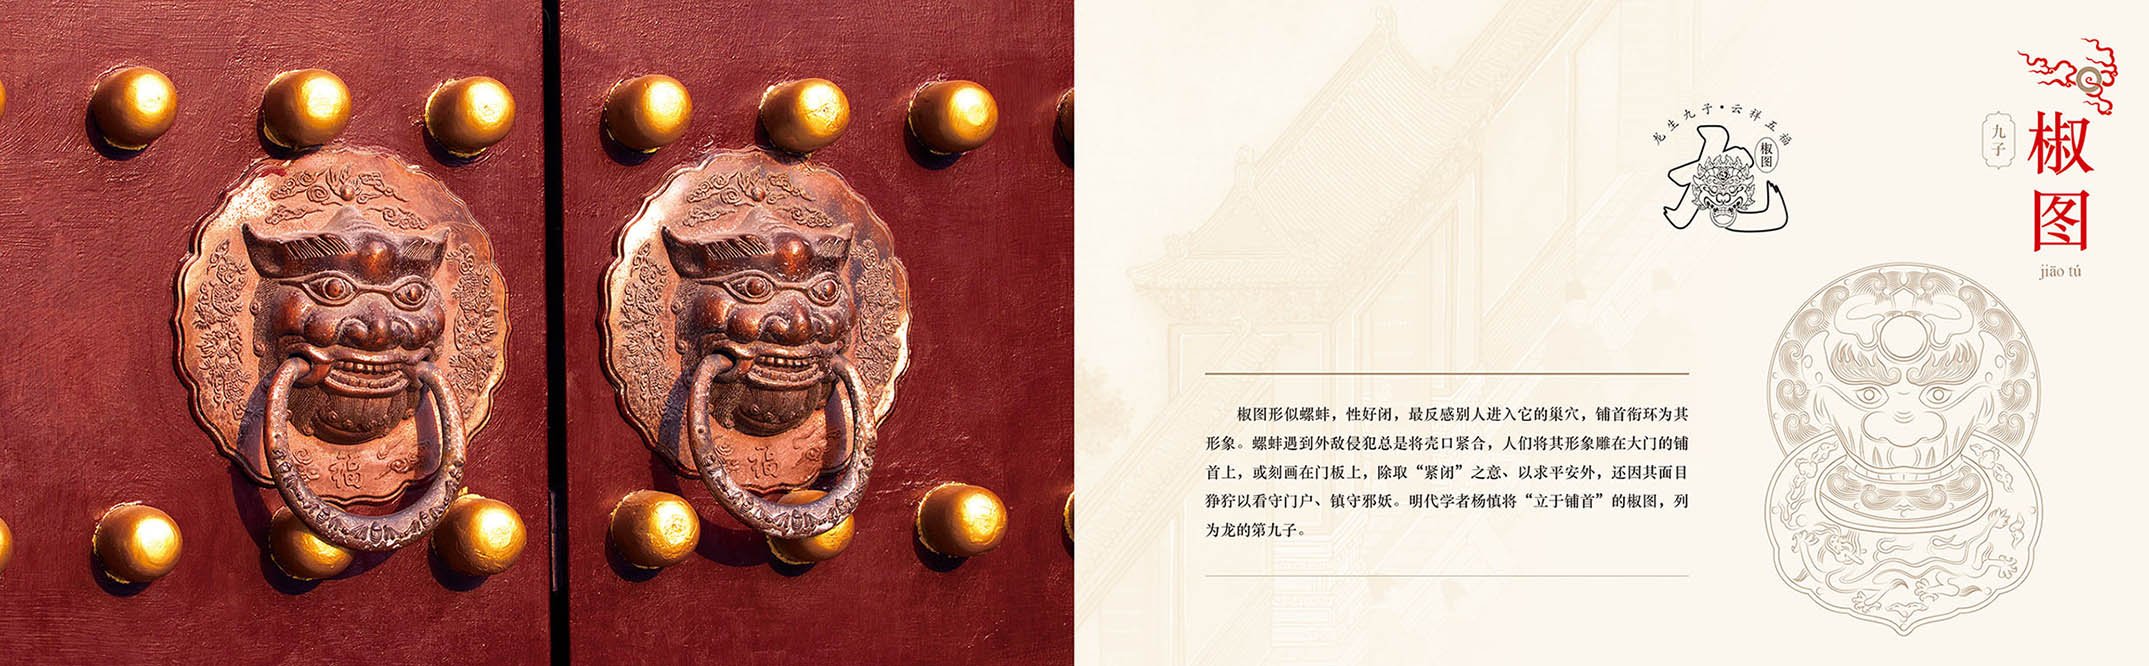 福
福
龙生九子·云祥五福
椒图
九子
椒图
jiāo tú
椒图形似螺蚌，性好闭，最反感别人进入它的巢穴，铺首衔环为其
形象。螺蚌遇到外敌侵犯总是将壳口紧合，人们将其形象雕在大门的铺
首上，或刻画在门板上，除取“紧闭”之意、以求平安外，还因其面目
狰狞以看守门户、镇守邪妖。明代学者杨慎将“立于铺首”的椒图，列
为龙的第九子。